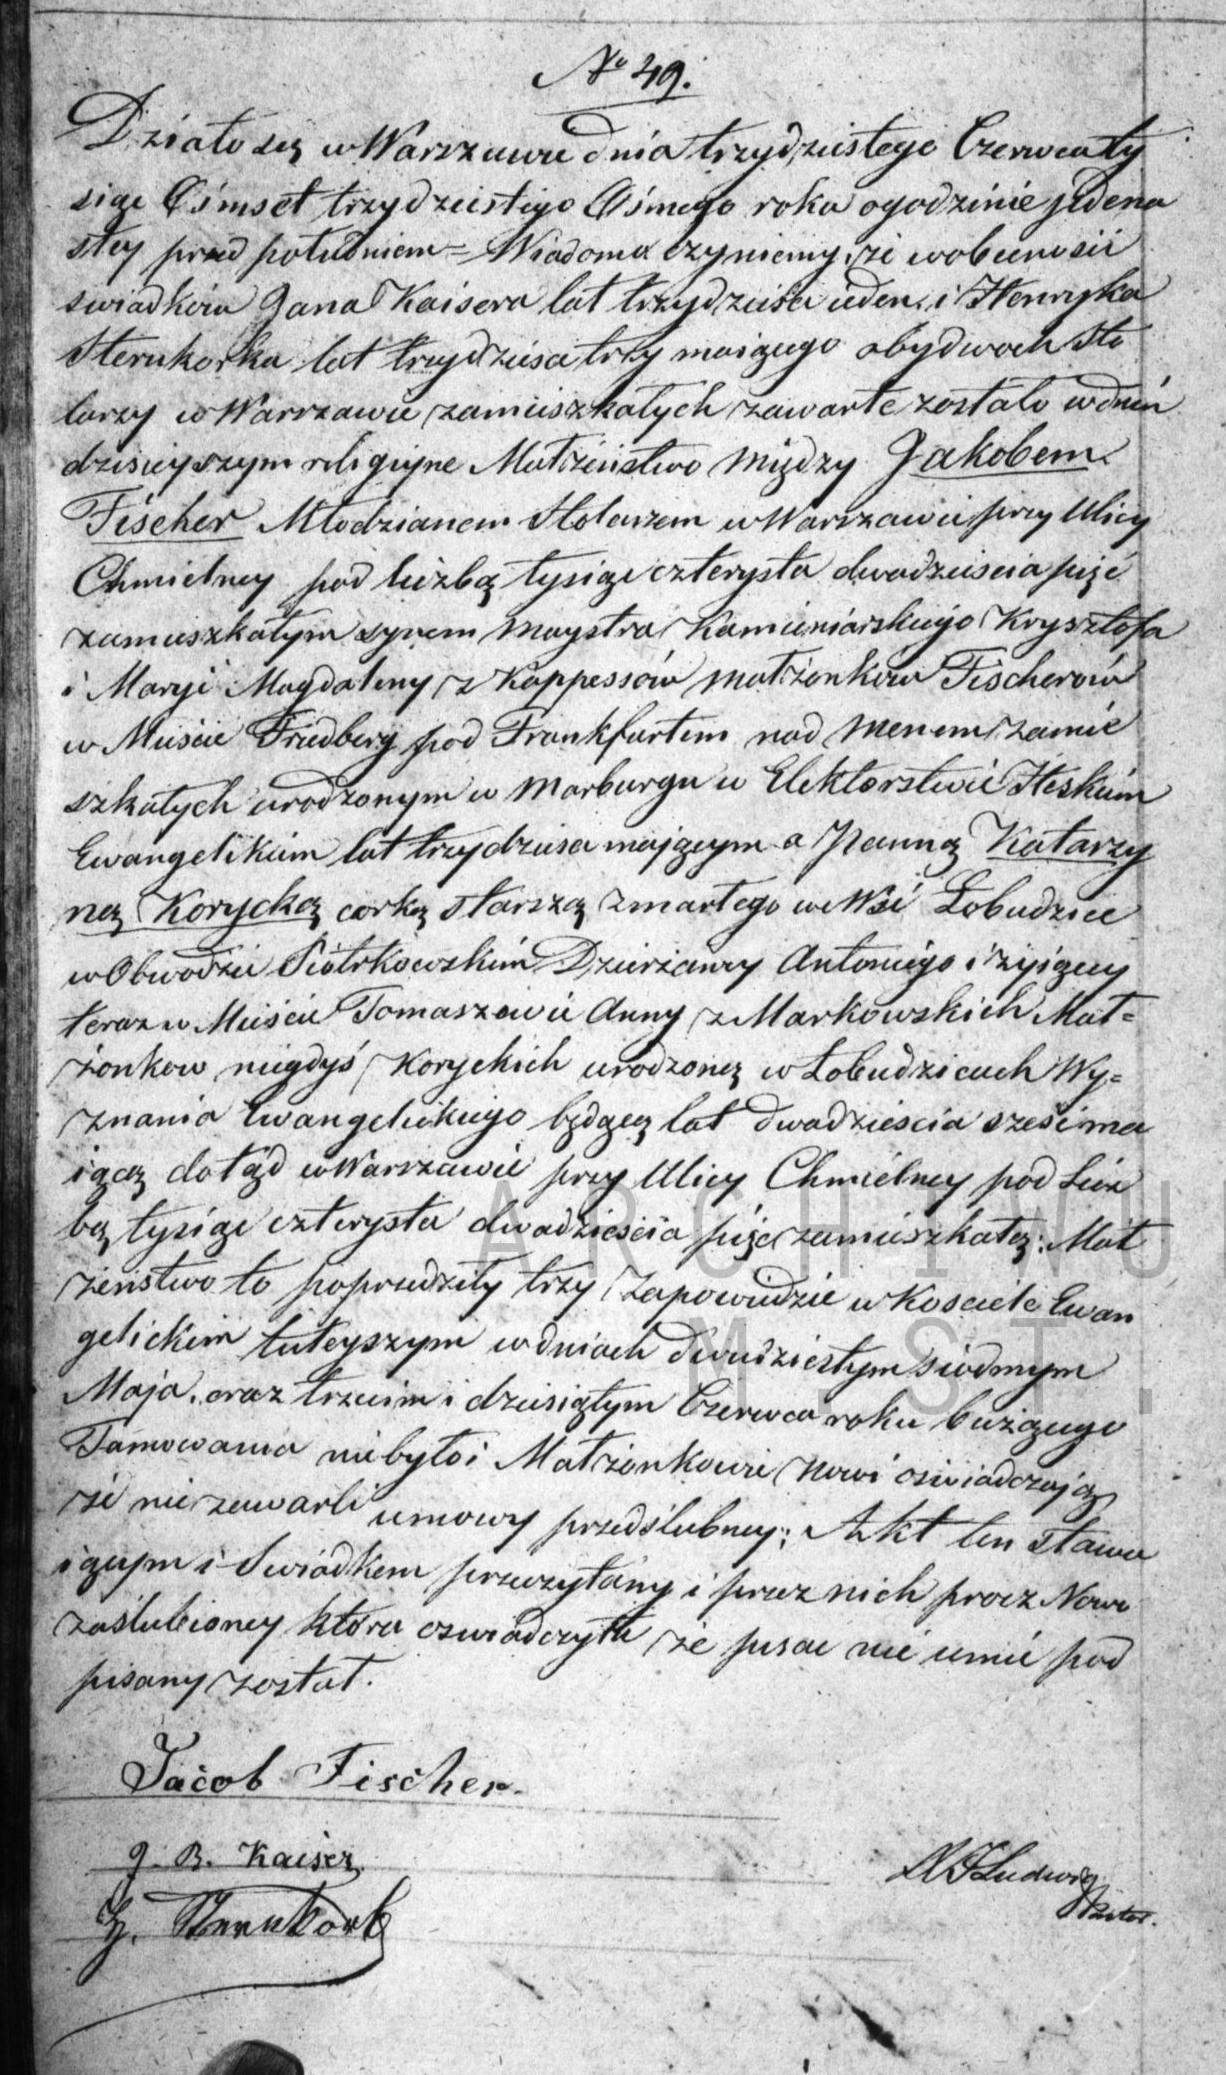 No 49.
Działo się w Warszawie dnia trzydziestego Czerwca ty
siąc Ośmset trzydziestego Ośmego roku o godzinie jedena
stey przed południem = Wiadomo czyniemy, że w obecności
swiadków Jana Kaisera lat trzydzieści ieden i Henryka
Sternkorka lat trzydzieści trzy maiącego obydwoch Sto
larzy w Warszawie zamieszkałych zawarte zostało w dniu
dzisieyszym religijne Małżeństwo między Jakobem
Fischer Młodzianem Stolarzem w Warszawie przy Ulicy
Chmielney pod liczbą tysiąc czterysta dwadzieścia pięć
zamieszkałym synem Maystra Kamieniarskiego Krysztofa
i Maryi Magdaleny z Kappessów małżonków Fischerów
w Mieście Friedberg pod Frankfurtem nad Menem zamie
szkałych urodzonym w Marburgu w Elektorstwie Heskim
Ewangelikiem lat trzydzieści mającym a Panną Katarzy
ną Korycką corką starszą zmarłego we Wsi Łobudzice
w Obwodzie Piotrkowskim Dzierżawcy Antoniego i żyiącey
teraz w Mieście Tomaszowie Anny z Markowskich Mał=
żonkow niegdyś Koryckich urodzoną w Łobudzicach Wy=
znania Ewangelickiego będącą lat dwadzieścia sześć ma
iącą dotąd w Warszawie przy Ulicy Chmielney pod Licz
bą tysiąc czterysta dwadzieścia pięć zamieszkałą: Mał
żeństwo to poprzedziły trzy Zapowiedzie w Kosciele Ewan
gelickim tuteyszym w dniach dwudziestym siodmym
Maja, oraz trzecim i dziesiątym Czerwca roku bieżącego
Tamowania nie było i Małżonkowie Nowi oświadczają
że nie zawarli umowy przedślubney; Akt ten stawa
iącym i Swiadkom przeczytany i przez nich procz Nowo
zaślubioney która oswiadczyła że pisać nie umie pod
pisany został.
Jacob Fischer.
J. B. Kaiser
H. Sternkork
Ludwig
Pastor.
ARCHIWU
M. ST.